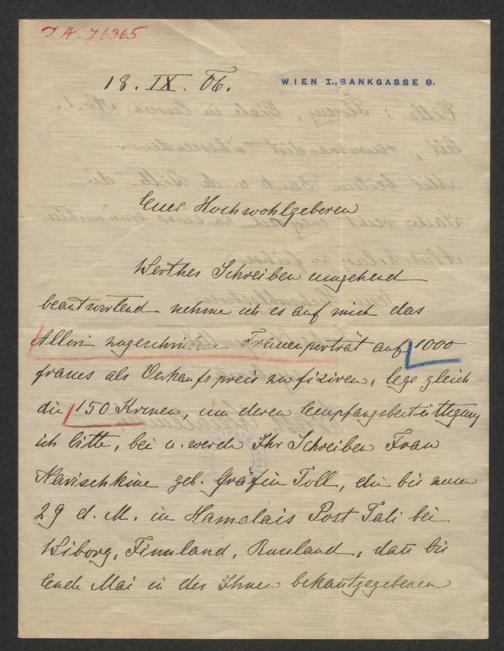 J.A. 76365
18. IX. 06.
WIEN I., BANKGASSE 9.
Euer Hochwohlgeboren
Werthes Schreiben umgehend
beantwortend nehme ich es auf mich das
Allori zugeschriebene Frauenporträt auf 1000
francs als Verkaufspreis zu fixiren, lege gleich
die 150 Kronen, um deren Empfangsbestättigung
ich bitte, bei u. werde Ihr Schreiben Frau
Narischkine geb. Gräfin Toll, die bis zum
29 d. M. in Hamalais Post Tali bei
Wiborg, Finnland, Russland, dann bis
Ende Mai in der Ihnen bekantgegebenen